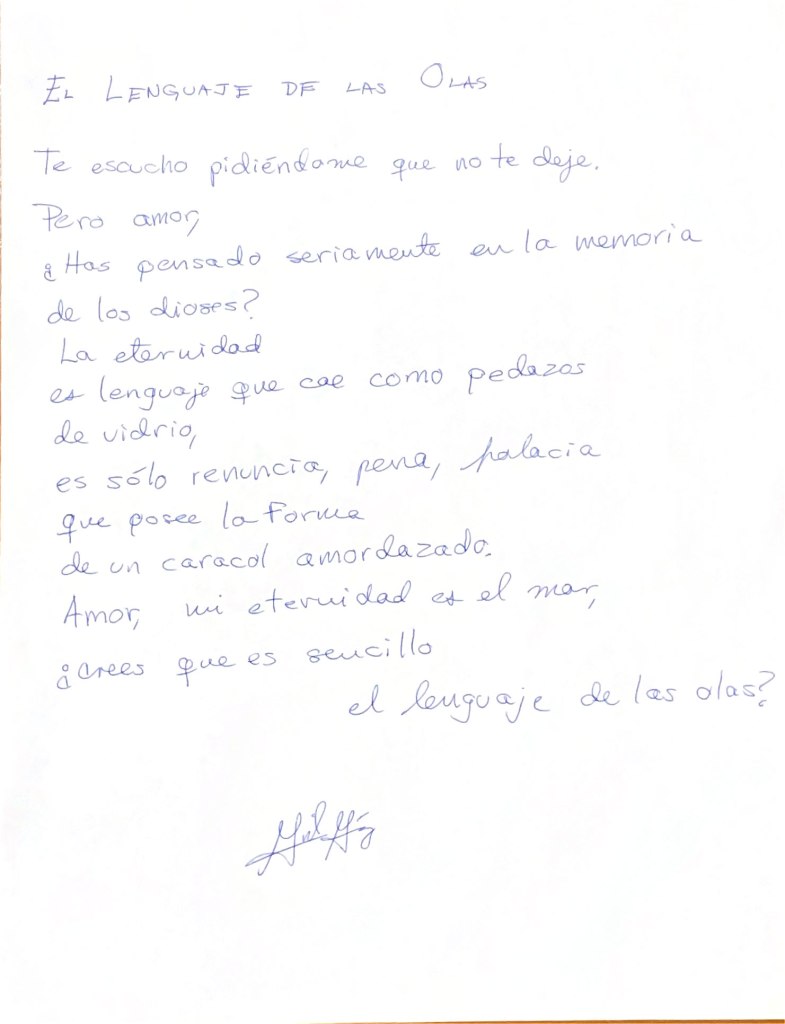 El Lenguaje de las Olas
Te escucho pidiéndome que no te deje.
Pero amor,
¿Has pensado seriamente en la memoria
de los dioses?
La eternidad
es lenguaje que cae como pedazos
de vidrio,
es sólo renuncia, pena, halacia
que posee la forma
de un caracol amordazado.
Amor, mi eternidad es el mar,
¿crees que es sencillo
el lenguaje de las olas?